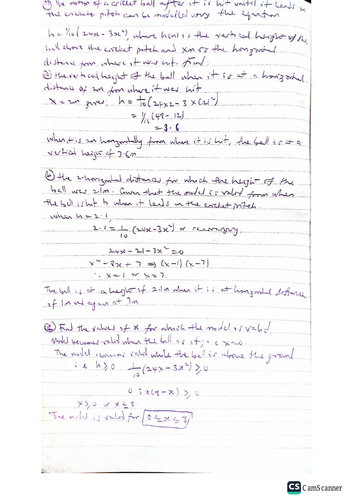 The motion of a cricket ball after it is hit until it lands on
the cricket pitch can be modelled using the equation
h = 1/10 (24x - 3x²), where h(m) is the vertical height of the
ball above the cricket pitch and xm is the horizontal
distance from where it was hit. Find:
ⓐ the vertical height of the ball when it is at a horizontal
distance of 2m from where it was hit
x = 2m gives, h = 1/10 (24×2 - 3×(2)²)
= 1/10 (48-12)
= 3.6
When it is 2m horizontally from where it is hit, the ball is at a
vertical height of 3.6m
ⓑ the 2 horizontal distances for which the height of the
ball was 2.1m. Given that the model is valid from when
the ball is hit to when it lands on the cricket pitch.
when h = 2.1,
2.1 = 1/10 (24x-3x²) or rearranging
24x - 21 - 3x² = 0
x² - 8x + 7 ⇒ (x-1)(x-7)
∴ x = 1 or x = 7.
The ball is at a height of 2.1m when it is at horizontal distances
of 1m and again at 7m
ⓒ Find the values of x for which the model is valid
Model becomes valid when the ball is hit, i.e x=0
The model remains valid while the ball is above the ground
i.e h ≥ 0 1/10 (24x - 3x²) ≥ 0
0.3x(8-x) ≥ 0
x ≥ 0 or x ≤ 8
The model is valid for 0 ≤ x ≤ 8
CS CamScanner